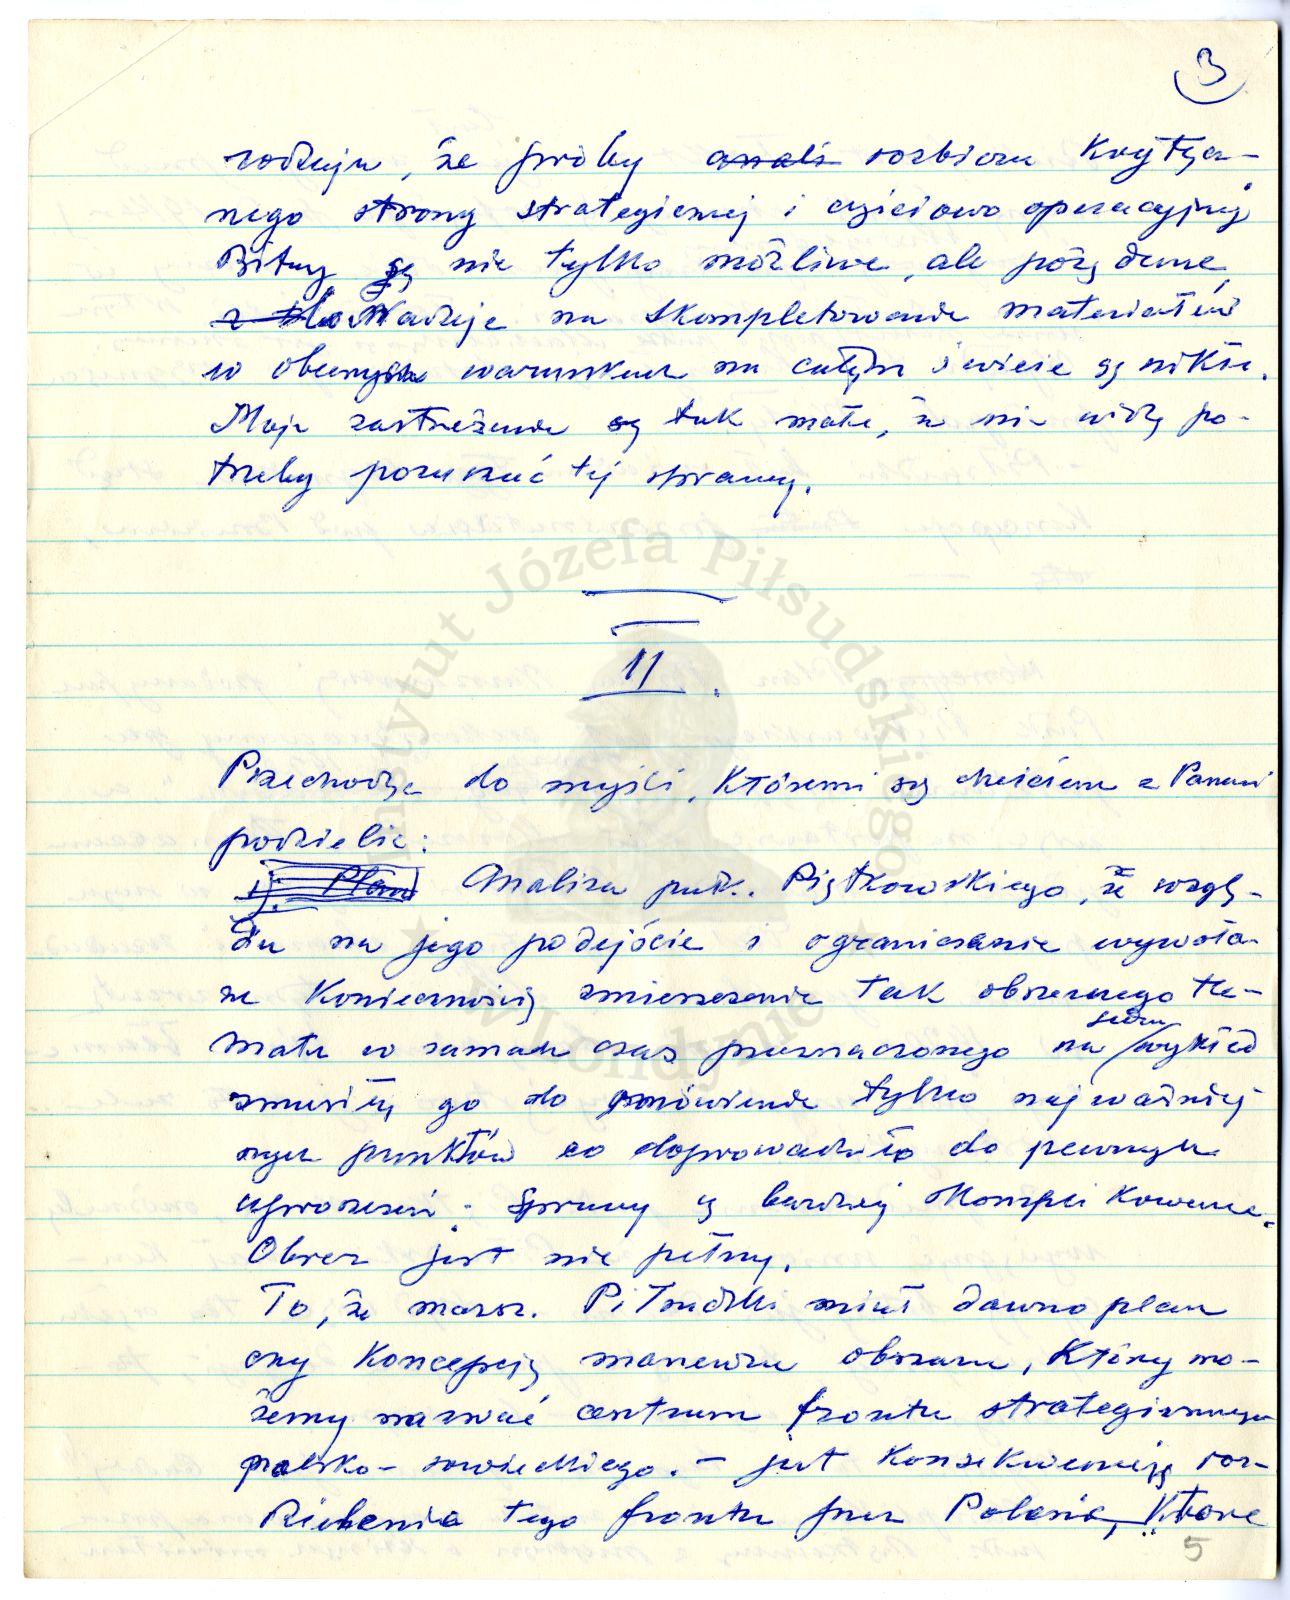 3
rodzaju, że próby anali rozbioru krytycz-
nego strony strategicznej i częściowo operacyjnej
Bitwy są nie tylko możliwe, ale pożądane,
Nadzieje na skompletowanie materiałów
w obecnych warunkach na całym świecie są nikłe.
Moje zastrzeżenia są tak małe, że nie widzę po-
trzeby poruszać tej sprawy.
II.
Przechodzę do myśli, któremi się chciałem z Panami
podzielić:
1). Plan Analiza płk. Piątkowskiego, ze wzglę-
du na jego podejście i ograniczenie wywoła-
ne koniecznością zmieszczenia tak obszernego te-
matu w ramach czasu przeznaczonego na wykład
zmusiły go do omówienia tylko najważniej
szych punktów co doprowadziło do pewnych
uproszczeń. Sprawy są bardziej skomplikowane.
Obraz jest nie pełny.
To, że marsz. Piłsudski miał dawno plan
czy koncepcję manewru obszaru, który mo-
żemy nazwać centrum frontu strategicznego
polsko-sowieckiego. – jest konsekwencją roz-
dzielenia tego frontu przez Polesie, które
5
Instytut Józefa Piłsudskiego
w Londynie